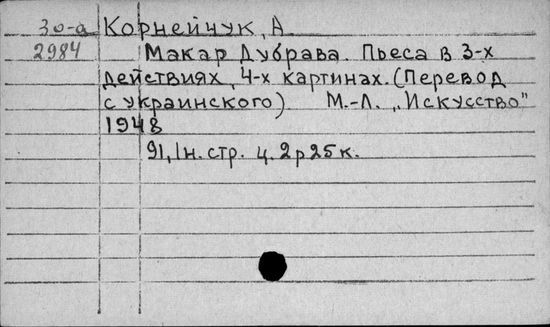 3о-а Корнейчук, А
2984 Макар Дубрава. Пьеса в 3-х
действиях, 4-х картинах. (Перевод
с украинского) М.-Л. „Искусство"
1948
91, 1н. стр. ц. 2 р 25 к.